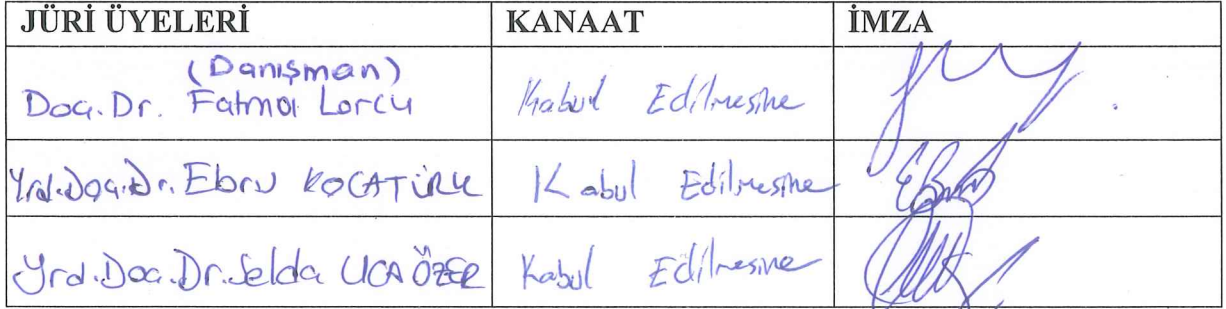 JÜRİ ÜYELERİ KANAAT İMZA
(Danışman)
Doç.Dr. Fatma Lorcu Kabul Edilmesine
Yrd.Doç.Dr. Ebru KOCATÜRK Kabul Edilmesine
Yrd.Doç.Dr. Selda UCA ÖZER Kabul Edilmesine